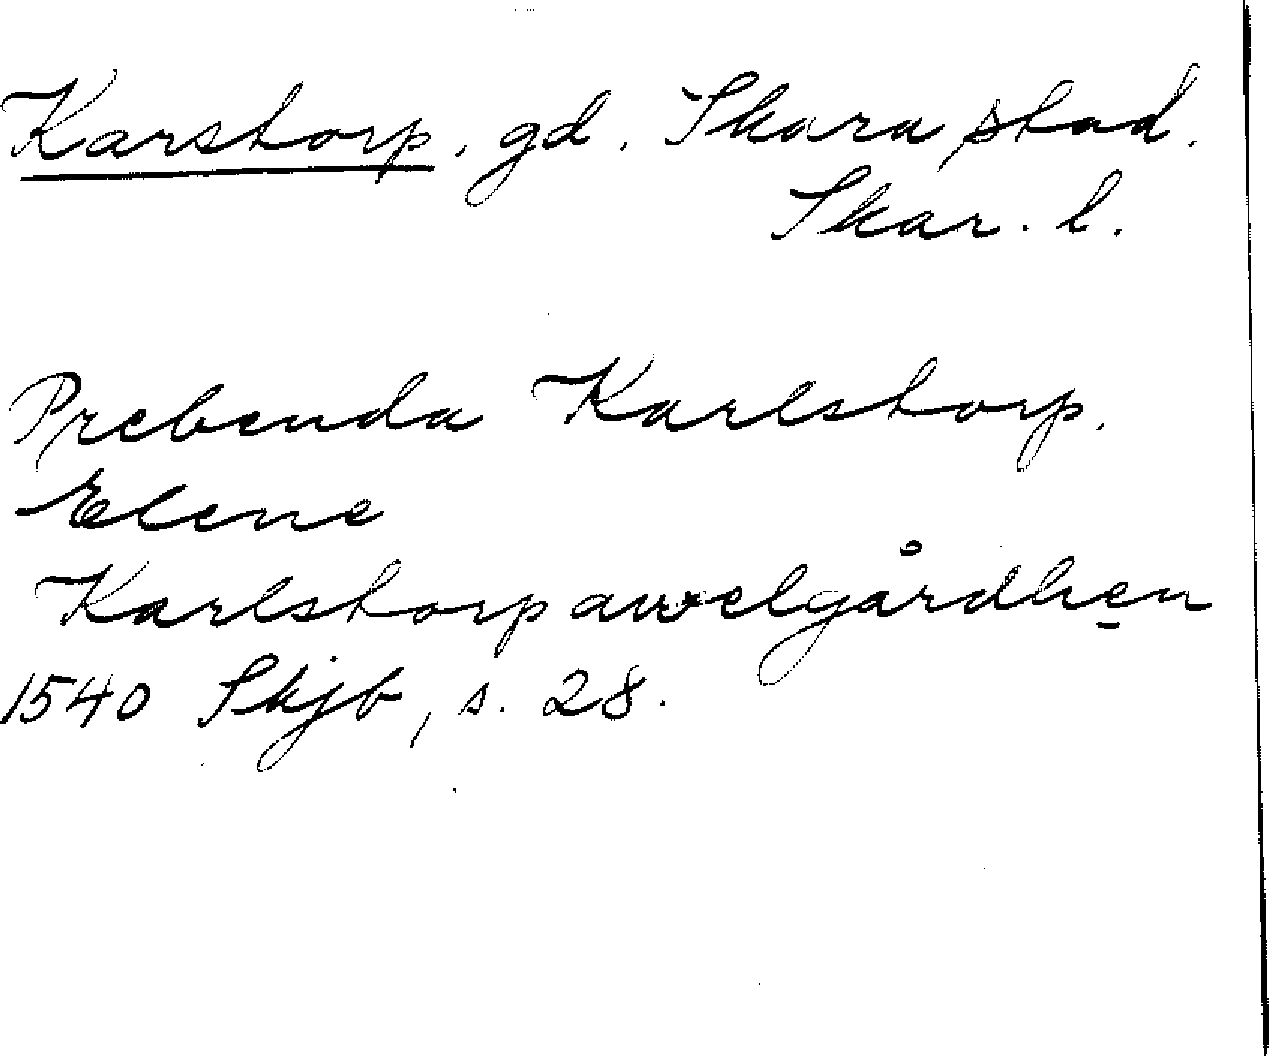 Karstorp. gd. Skara stad.
Skar. l.
Prebenda Karlstorp.
Elene
Karlstorp awelgårdhen
1540 Skjb, s. 28.